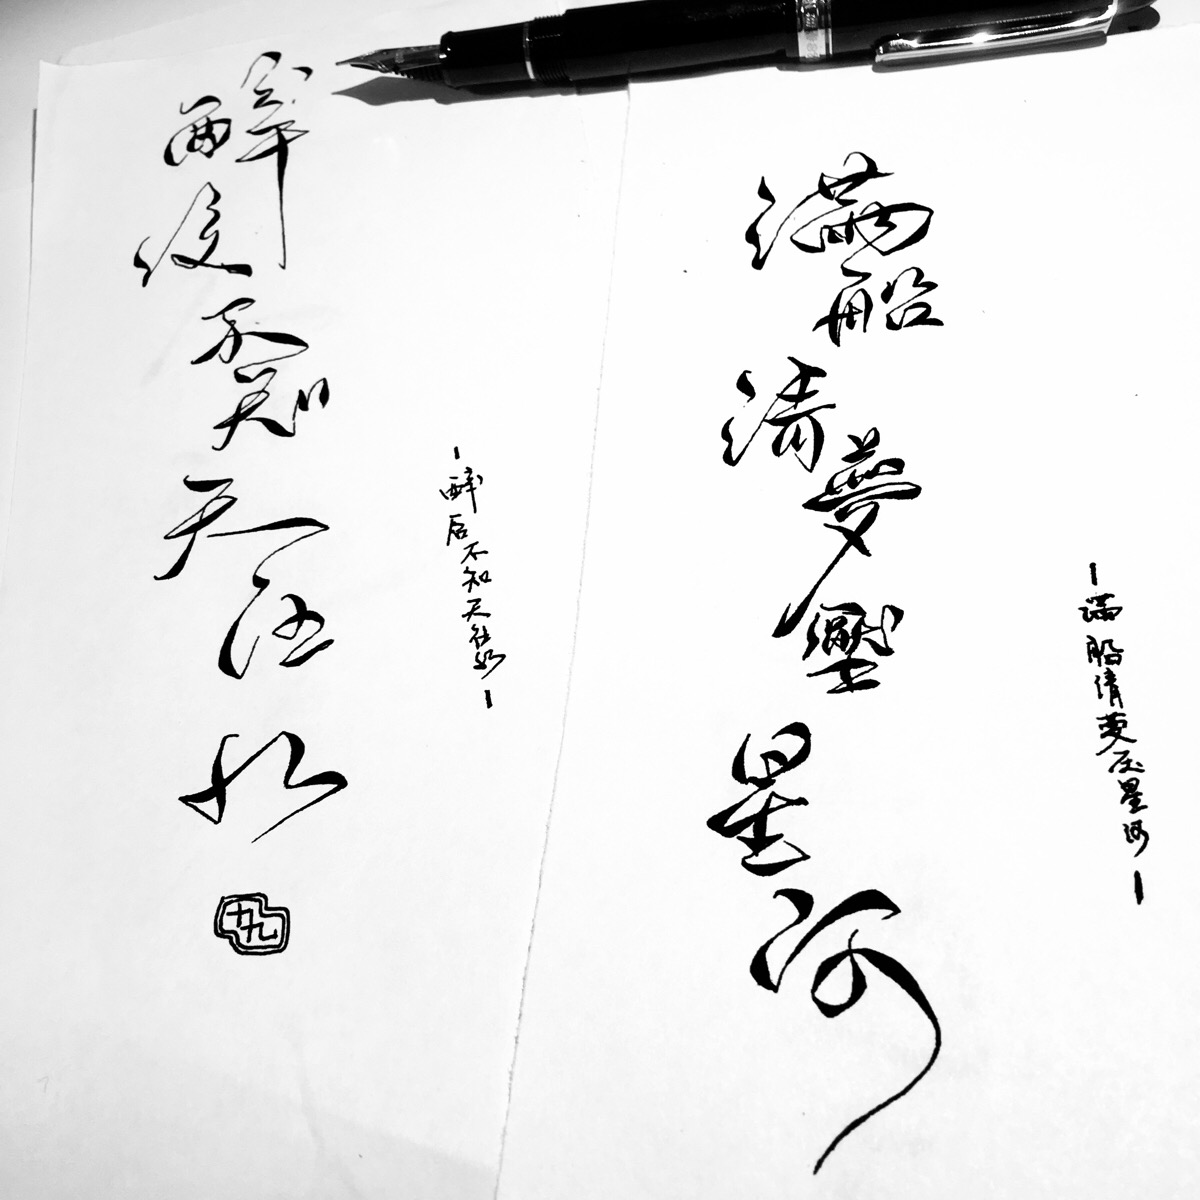 醉後不知天在水
十九
醉后不知天在水
滿船清夢壓星河
满船清夢压星河